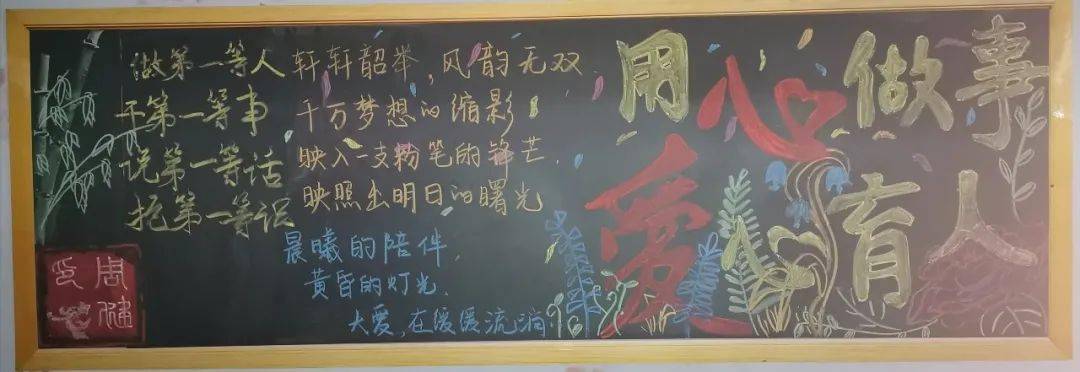 做第一等人
干第一等事
说第一等话
抱第一等识
轩轩韶举,风韵无双.
千万梦想的缩影
映入一支粉笔的锋芒.
映照出明日的曙光
晨曦的陪伴,
黄昏的灯光.
大爱,在缓缓流淌
用心做事
爱心育人
周健